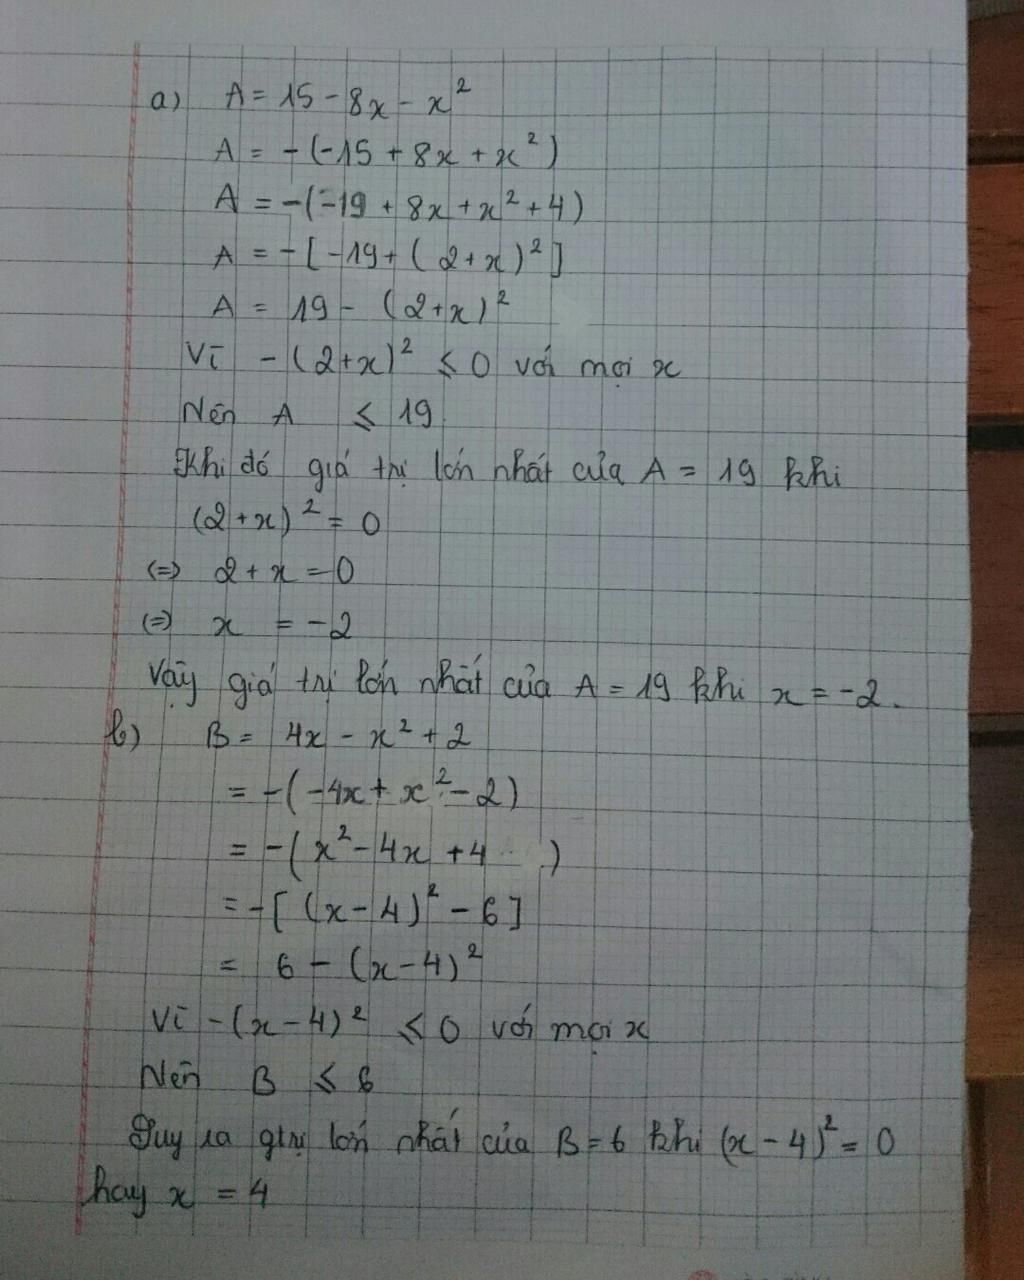 a) A = 15 - 8x - x²
A = -(-15 + 8x + x²)
A = -(-19 + 8x + x² + 4)
A = -[-19 + (2+x)²]
A = 19 - (2+x)²
Vì -(2+x)² ≤ 0 với mọi x
Nên A ≤ 19
Khi đó giá trị lớn nhất của A = 19 khi
(2+x)² = 0
(=) 2 + x = 0
(=) x = -2
Vậy giá trị lớn nhất của A = 19 khi x = -2.
b) B = 4x - x² + 2
= -(-4x + x² - 2)
= -(x² - 4x + 4 )
= -[(x-4)² - 6]
= 6 - (x-4)²
Vì -(x-4)² ≤ 0 với mọi x
Nên B ≤ 6
Suy ra gtrị lớn nhất của B = 6 khi (x-4)² = 0
hay x = 4